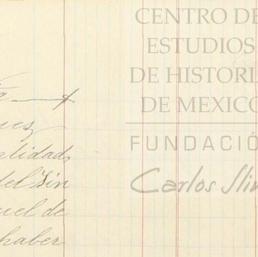 CENTRO DE
ESTUDIOS
DE HISTORI
DE MEXICO
FUNDACIÓ
Carlos Slim
alidad,
del Sin
uel de
haber